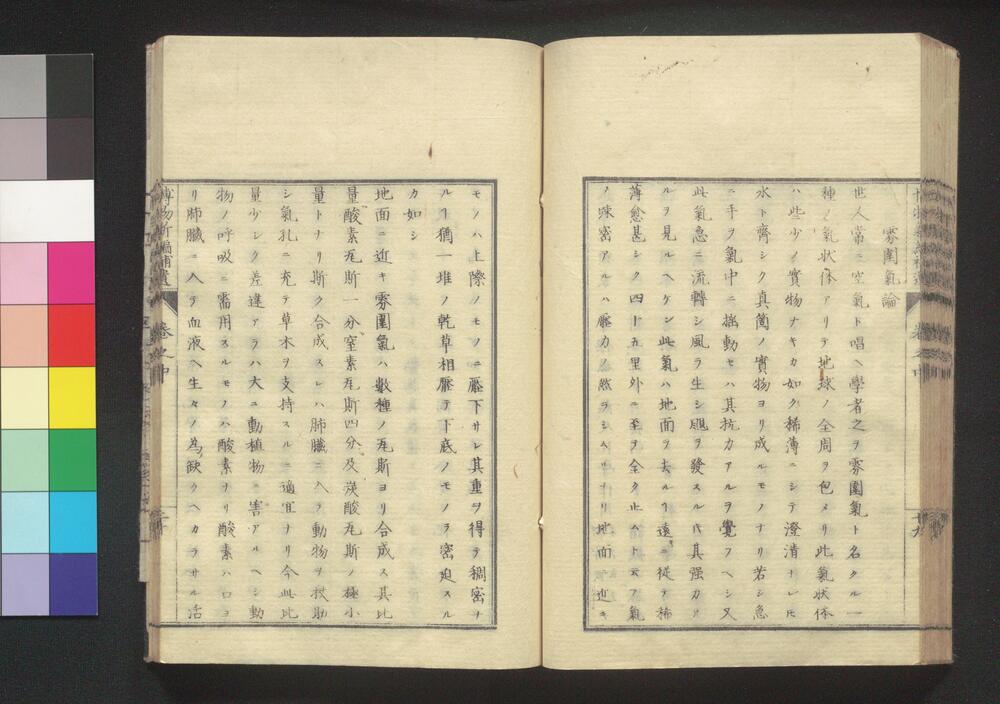 雰圍氣論
世人常ニ空氣ト唱ヘ學者之ヲ雰圍氣ト名クル一
種ノ氣狀体アリテ地球ノ全周ヲ包メリ此氣狀体
ハ些少ノ實物ナキカ如ク稀薄ニシテ澄清ナレㇳモ
水ト齊シク真箇ノ實物ヨリ成ルモノナリ若シ急
ニ手ヲ氣中ニ揺動セハ其抗力アルヲ覺フヘシ又
此氣急ニ流轉シ風ヲ生シ颶ヲ發スル片其强力ナ
ルヲ見ルヘケン此氣ハ地面ヲ去ルヿ遠ニ從テ稀
薄愈甚シク四十五里外ニ至ヲ全ク止ムト云フ氣
ノ疎密アルハ壓力ノ然ラシムルナリ地面ニ近キ
モノハ上際ノモノニ壓下サレ其重ヲ得テ稠密ヿ
ルヿ猶一堆ノ乾草相壓テ下底ノモノヲ密迫スル
カ如シ
地面ニ近キ雰圍氣ハ數種ノ瓦斯ヨリ合成ス其比
量酸素瓦斯一分窒素瓦斯四分及炭酸瓦斯ノ極小
量トナリ斯ク合成スレハ肺臟ニ入ヲ動物ヲ扶助
シ氣孔ニ充テ草木ヲ支持スルニ適宜ナリ今此比
量少シク差違アラハ大ニ動植物ニ害アルヘシ動
物ノ呼吸ニ需用スルモノハ酸素ナリ酸素ハ口ヨ
リ肺臟ニ入テ血液ヘ生々ノ為欠クヘカラサル活
博物新編補遺 卷之中